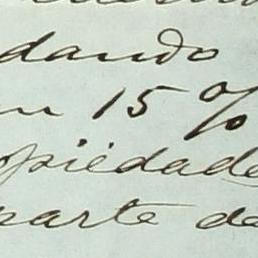 dando
un 15 %
opiedade
parte de